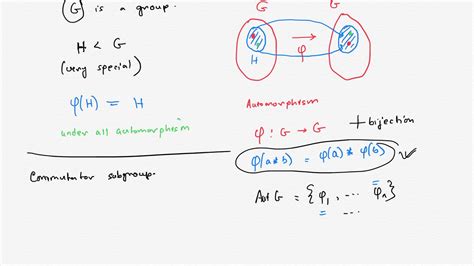 G is a group.
H < G
(very special)
φ(H) = H
under all automorphism
Commutator subgroup.
G G
H φ
Automorphism
φ : G → G + bijection
φ(a*b) = φ(a) * φ(b)
Aut G = {φ₁, ... φₙ}
...